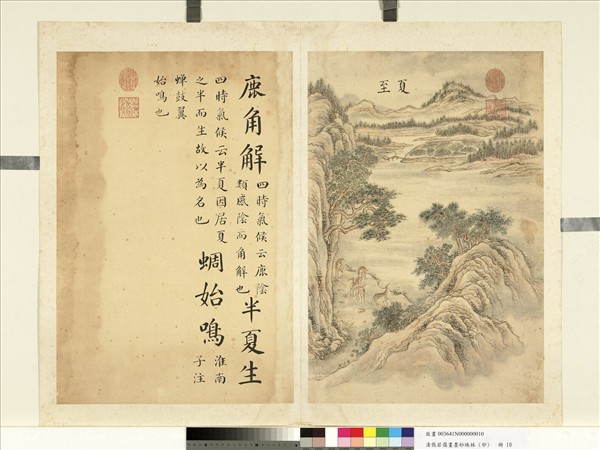 夏至
鹿角解
四時氣候云鹿陰
類感陰而角解也
半夏生
四時氣候云半夏因居夏
之半而生故以為名也
蜩始鳴
淮南
子注
蟬鼓翼
始鳴也
故畫 003641N000000010
清張若靄畫墨妙珠林（申） 冊 10